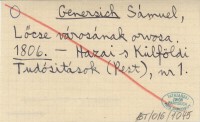 O Genersich Sámuel,
Lőcse városának orvosa.
1806. — Hazai s Külföldi
Tudósítások (Pest), nr 1.
BT/016/1045